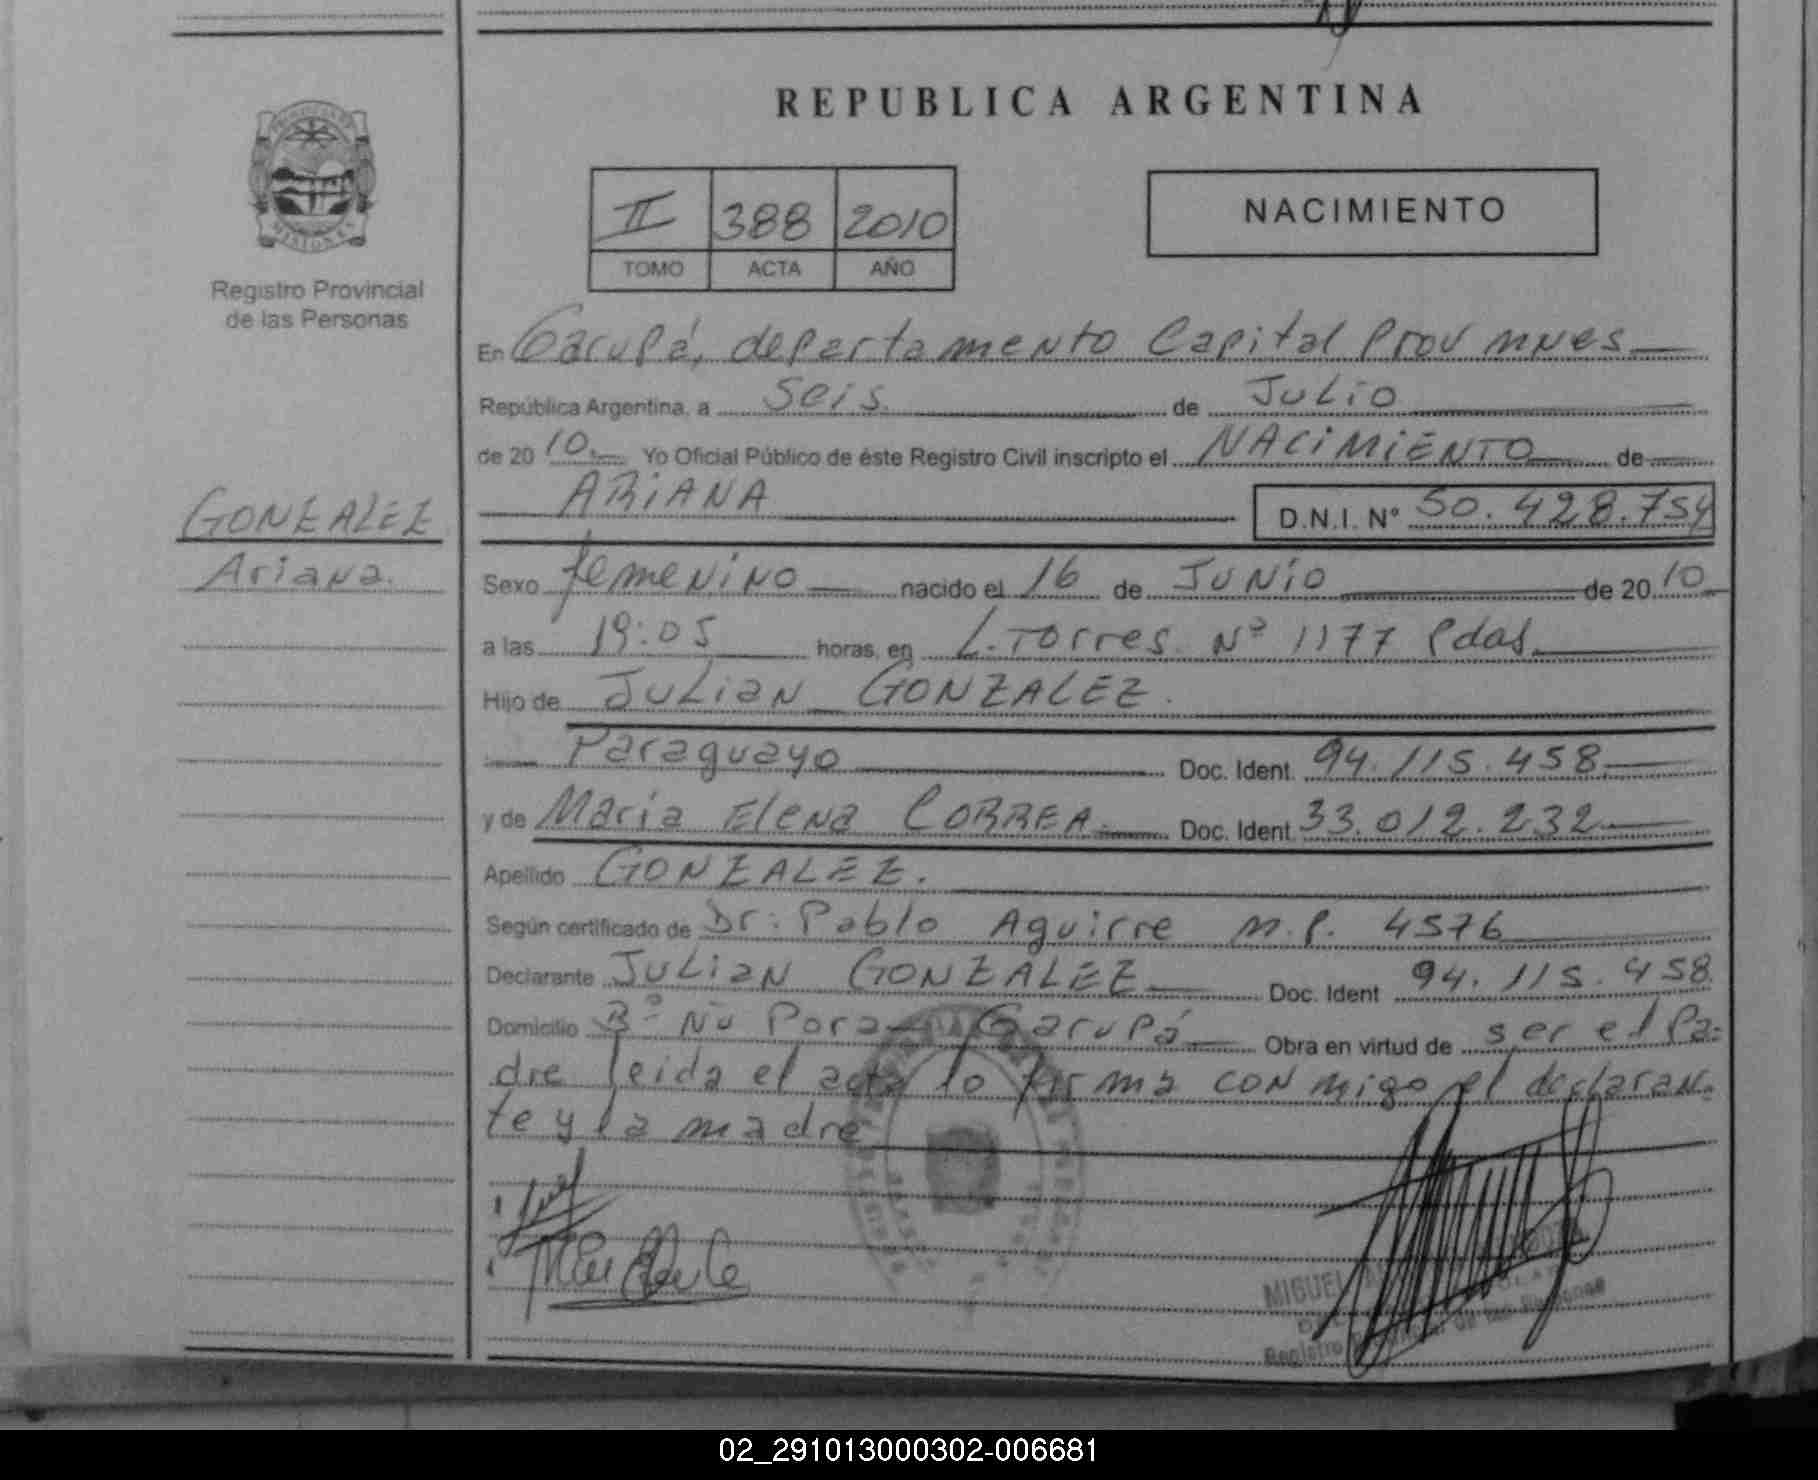 REPUBLICA ARGENTINA
PROVINCIA DE
MISIONES
Registro Provincial
de las Personas
II 388 2010
TOMO ACTA AÑO
NACIMIENTO
En Garupá, departamento Capital Prov mnes
República Argentina, a seis de Julio
de 20 10. Yo Oficial Público de éste Registro Civil inscripto el NACIMIENTO de
ARIANA D.N.I. N° 50.428.754
GONZALEZ
Ariana.
Sexo femenino nacido el 16 de JUNIO de 20 10
a las 19:05 horas, en L. Torres Nº 1177 Pdas
Hijo de JULIAN GONZALEZ.
Paraguayo Doc. Ident. 94.115.458
y de Maria Elena CORREA Doc. Ident. 33.012.232
Apellido GONZALEZ.
Según certificado de Dr: Pablo Aguirre m.p. 4576
Declarante JULIAN GONZALEZ Doc. Ident 94.115.458
Domicilio Bº Ñu Pora - Garupá Obra en virtud de ser el Pa-
dre leida el acta lo firma conmigo el declaran-
te y la madre
MIGUEL
Registro Provincial de las Personas
02_291013000302-006681